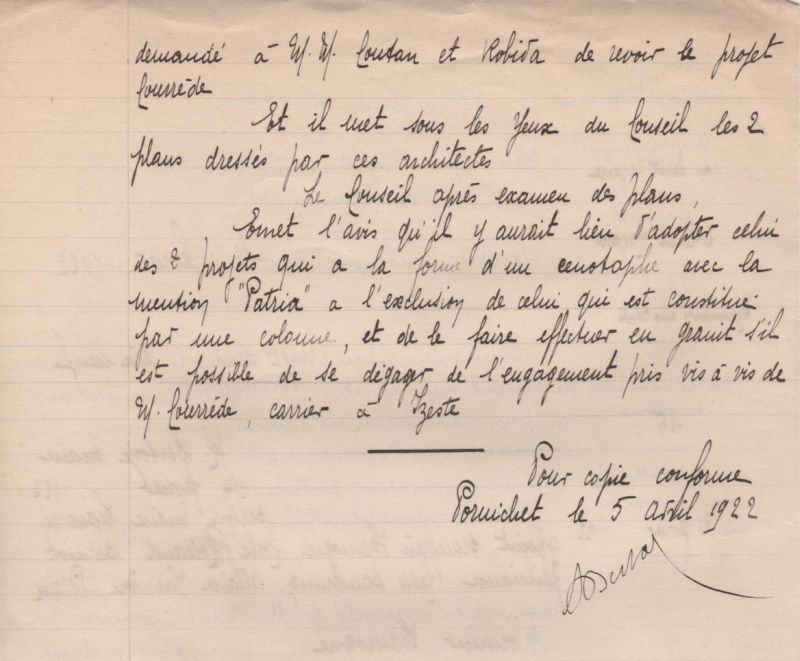 demandé à M. M. Coutan et Robida de revoir le projet
Courrède
Et il met sous les yeux du Conseil les 2
plans dressés par ces architectes
Le Conseil après examen des plans,
Emet l'avis qu'il y aurait lieu d'adopter celui
des 2 projets qui a la forme d'un cenotaphe avec la
mention "Patria" a l'exclusion de celui qui est constitué
par une colonne, et de le faire effectuer en granit s'il
est possible de se dégager de l'engagement pris vis à vis de
M. Courrède, carrier à Izeste
Pour copie conforme
Pornichet le 5 Avril 1922